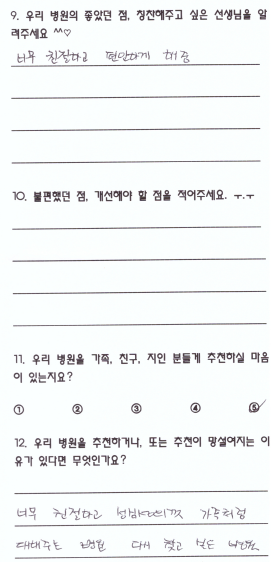 9. 우리 병원의 좋았던 점, 칭찬해주고 싶은 선생님을 알
려주세요 ^^♡
너무 친절하고 편안하게 해줌
10. 불편했던 점, 개선해야 할 점을 적어주세요. ㅜ.ㅜ
11. 우리 병원을 가족, 친구, 지인 분들게 추천하실 마음
이 있는지요?
① ② ③ ④ ⑤
12. 우리 병원을 추천하거나, 또는 추천이 망설여지는 이
유가 있다면 무엇인가요?
너무 친절하고 가족처럼
대해주는 병원 다시 찾고 싶은